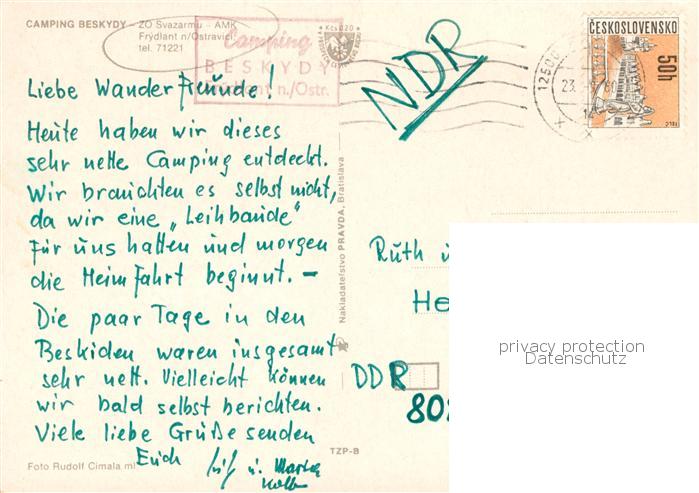 CAMPING BESKYDY – ZO Svazarmu – AMK
Frýdlant n/Ostravicí
tel. 71221
Camping
BESKYDY
n./Ostr.
Kčs 0,20
NDR
ČESKOSLOVENSKO
50h
Liebe Wanderfreunde!
Heute haben wir dieses
sehr nette Camping entdeckt.
Wir brauchten es selbst nicht,
da wir eine „Leihbaude"
für uns hatten und morgen
die Heimfahrt beginnt. –
Die paar Tage in den
Beskiden waren insgesamt
sehr nett. Vielleicht können
wir bald selbst berichten.
Viele liebe Grüße senden
Euch
u.
Nakladatelstvo PRAVDA, Bratislava
Ruth
He
DDR
80
privacy protection
Datenschutz
TZP-B
Foto Rudolf Cimala ml.